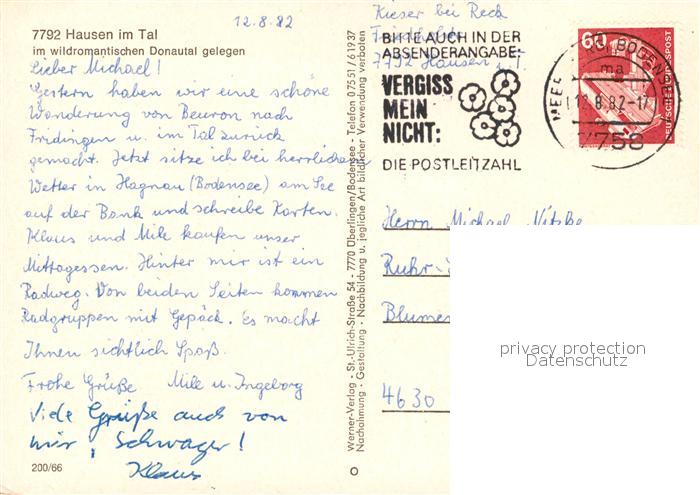 12.8.82
7792 Hausen im Tal
im wildromantischen Donautal gelegen
Lieber Michael!
Gestern haben wir eine schöne
Wanderung von Beuron nach
Fridingen u. im Tal zurück
gemacht. Jetzt sitze ich bei herrlichem
Wetter in Hagnau (Bodensee) am See
auf der Bank und schreibe Karten.
Klaus und Mile kaufen unser
Mittagessen. Hinter mir ist ein
Radweg. Von beiden Seiten kommen
Radgruppen mit Gepäck. Es macht
Ihnen sichtlich Spaß.
Frohe Grüße Mile u. Ingeborg
Viele Grüße auch von
mir, Schwager!
Klaus
200/66
Werner-Verlag - St.-Ulrich-Straße 54 - 7770 Überlingen/Bodensee - Telefon 07551/61937
Nachahmung - Gestaltung - Nachbildung u. jegliche Art bildlicher Verwendung verboten
Kieser bei Reck
7792 Hausen i. T.
BITTE AUCH IN DER
ABSENDERANGABE:
VERGISS
MEIN
NICHT:
DIE POSTLEITZAHL
60
DEUTSCHE BUNDESPOST
ma
12.8.82-17
7758
Herrn Michael Nitzke
Ruhr-
Blumen
4630
privacy protection
Datenschutz